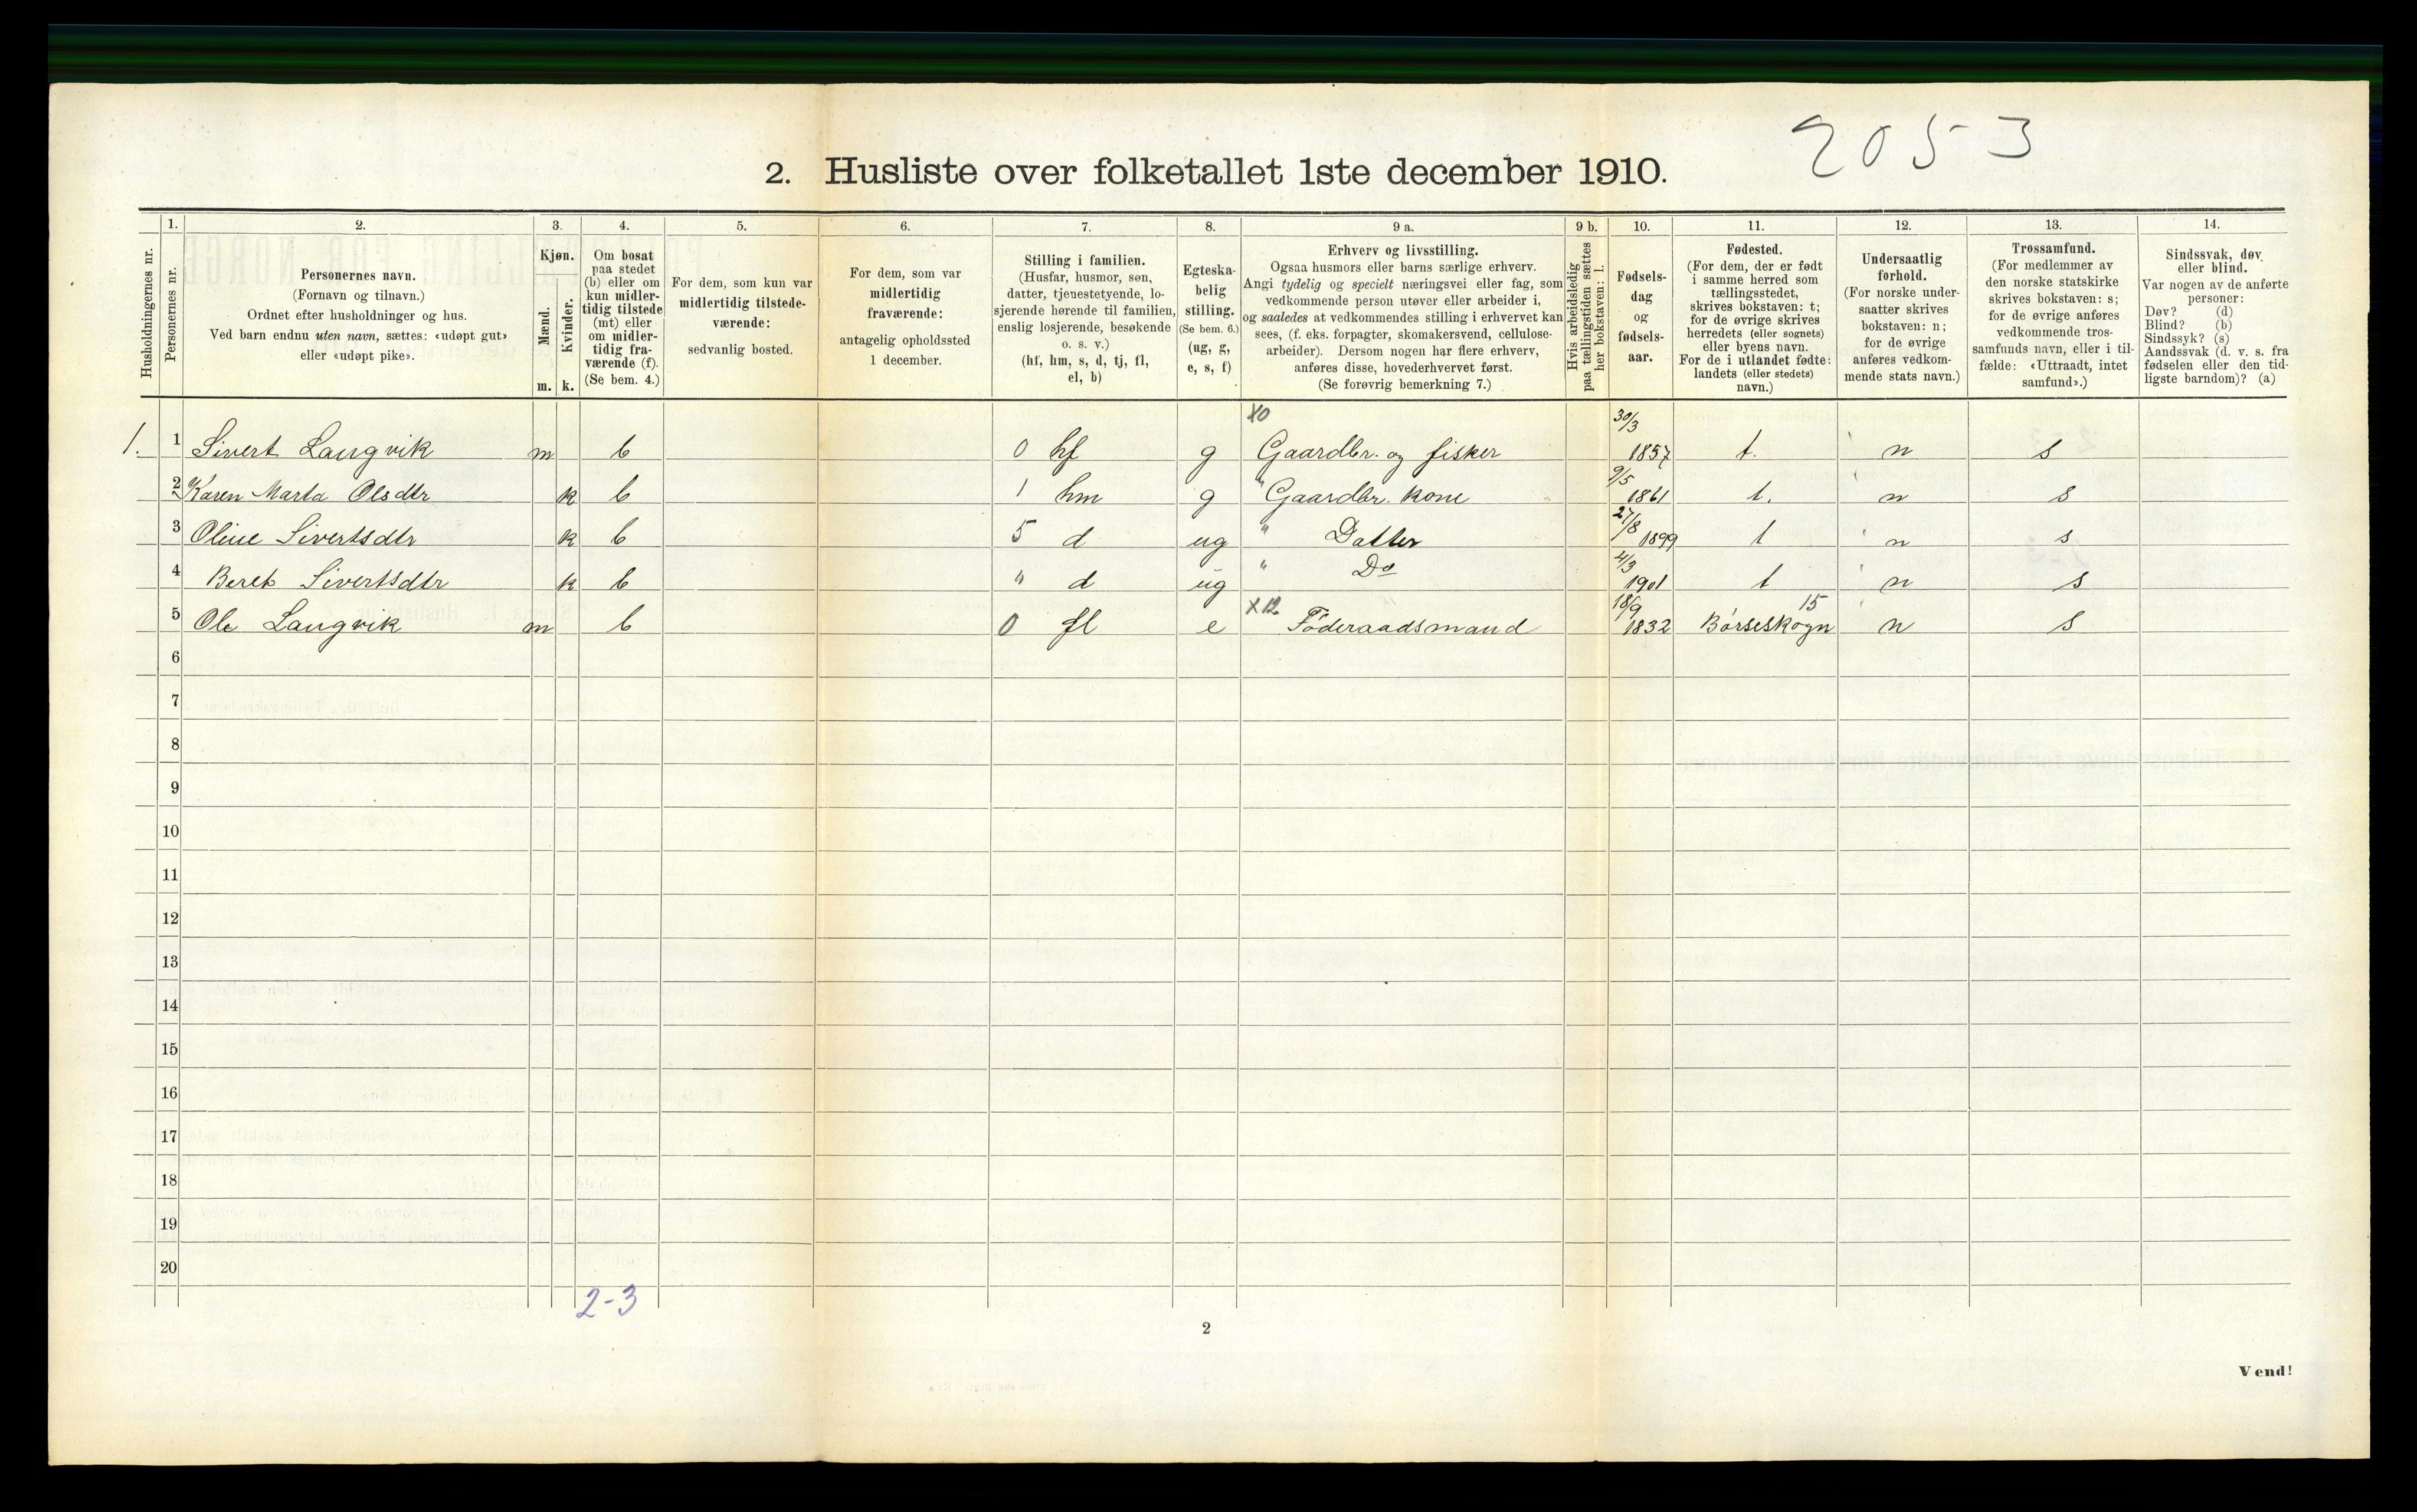 2053
2. Husliste over folketallet 1ste december 1910.
1. 2. 3. 4. 5. 6. 7. 8. 9 a. 9 b. 10. 11. 12. 13. 14.
Husholdningernes nr.
Personernes nr.
Personernes navn.
(Fornavn og tilnavn.)
Ordnet efter husholdninger og hus.
Ved barn endnu uten navn, sættes: «udøpt gut»
eller «udøpt pike».
Kjøn.
Mænd.
Kvinder.
m. k.
Om bosat
paa stedet
(b) eller om
kun midler-
tidig tilstede
(mt) eller
om midler-
tidig fra-
værende (f).
(Se bem. 4.)
For dem, som kun var
midlertidig tilstede-
værende:
sedvanlig bosted.
For dem, som var
midlertidig
fraværende:
antagelig opholdssted
1 december.
Stilling i familien.
(Husfar, husmor, søn,
datter, tjenestetyende, lo-
sjerende hørende til familien,
enslig losjerende, besøkende
o. s. v.)
(hf, hm, s, d, tj, fl,
el, b)
Egteska-
belig
stilling.
(Se bem. 6.)
(ug, g,
e, s, f)
Erhverv og livsstilling.
Ogsaa husmors eller barns særlige erhverv.
Angi tydelig og specielt næringsvei eller fag, som
vedkommende person utøver eller arbeider i,
og saaledes at vedkommendes stilling i erhvervet kan
sees, (f. eks. forpagter, skomakersvend, cellulose-
arbeider). Dersom nogen har flere erhverv,
anføres disse, hovederhvervet først.
(Se forøvrig bemerkning 7.)
Hvis arbeidsledig
paa tællingstiden sættes
her bokstaven: l.
Fødsels-
dag
og
fødsels-
aar.
Fødested.
(For dem, der er født
i samme herred som
tællingsstedet,
skrives bokstaven: t;
for de øvrige skrives
herredets (eller sognets)
eller byens navn.
For de i utlandet fødte:
landets (eller stedets)
navn.)
Undersaatlig
forhold.
(For norske under-
saatter skrives
bokstaven: n;
for de øvrige
anføres vedkom-
mende stats navn.)
Trossamfund.
(For medlemmer av
den norske statskirke
skrives bokstaven: s;
for de øvrige anføres
vedkommende tros-
samfunds navn, eller i til-
fælde: «Uttraadt, intet
samfund».)
Sindssvak, døv
eller blind.
Var nogen av de anførte
personer:
Døv? (d)
Blind? (b)
Sindssyk? (s)
Aandssvak (d. v. s. fra
fødselen eller den tid-
ligste barndom)? (a)
X0 30/3
1. 1 Sivert Langvik m b 0 hf g Gaardbr. og fisker 1857 t. n s
2 Karen Marta Olsdtr k b 1 hm g " Gaardbr. kone 9/5 1861 t. n s
3 Oline Sivertsdtr k b 5 d ug " Datter 27/8 1899 t n s
4 Beret Sivertsdtr k b " d ug " Do 4/3 1901 t n s
5 Ole Langvik m b 0 fl e X12 Föderaadsmand 18/9 1832 Börseskogn 15 n s
6
7
8
9
10
11
12
13
14
15
16
17
18
19
20
2-3
2
Vend!